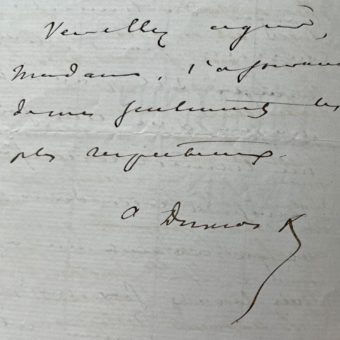 Veuillez agréer,
Madame, l'assurance
de mes sentiments les
plus respectueux.
A Dumas